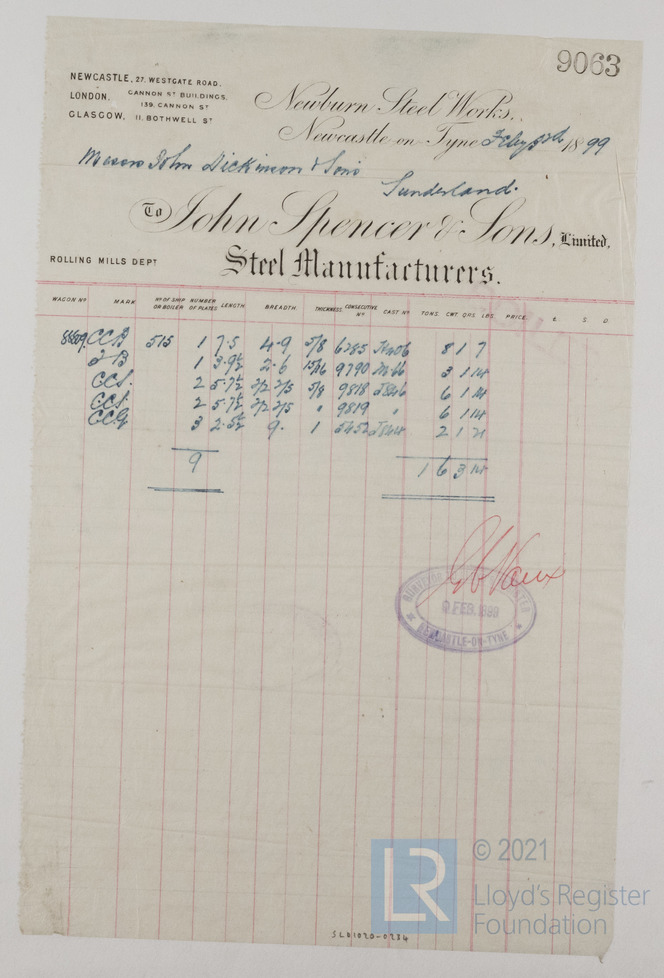 9063
NEWCASTLE, 27. WESTGATE ROAD.
LONDON, CANNON ST BUILDINGS,
139, CANNON ST
GLASGOW, 11. BOTHWELL ST
Newburn Steel Works,
Newcastle on Tyne Feby 1899
Messrs John Dickinson & Sons
Sunderland.
To John Spencer & Sons, Limited,
ROLLING MILLS DEPT
Steel Manufacturers.
WAGON No MARK No OF SHIP OR BOILER NUMBER OF PLATES LENGTH BREADTH. THICKNESS CONSECUTIVE No CAST No TONS. CWT QRS LBS. PRICE. £ S. D.
CCB 515 1 7.5 4-9 5/8 6285 8 1 7
2-B 1 3-9½ 2-6 15/16 9790 3 1 14
CCS. 2 5-7½ 2/2 2/5 5/8 9818 6 1 14
CCS. 2 5-7½ 2/2 2/5 " 9819 " 6 1 14
CCG 3 2-5½ 9. 1 5452 2 1 21
9 1 6 3 14
FEB. 1899
NEWCASTLE-ON-TYNE
LR © 2021
Lloyd's Register
Foundation
SLD1020-0234